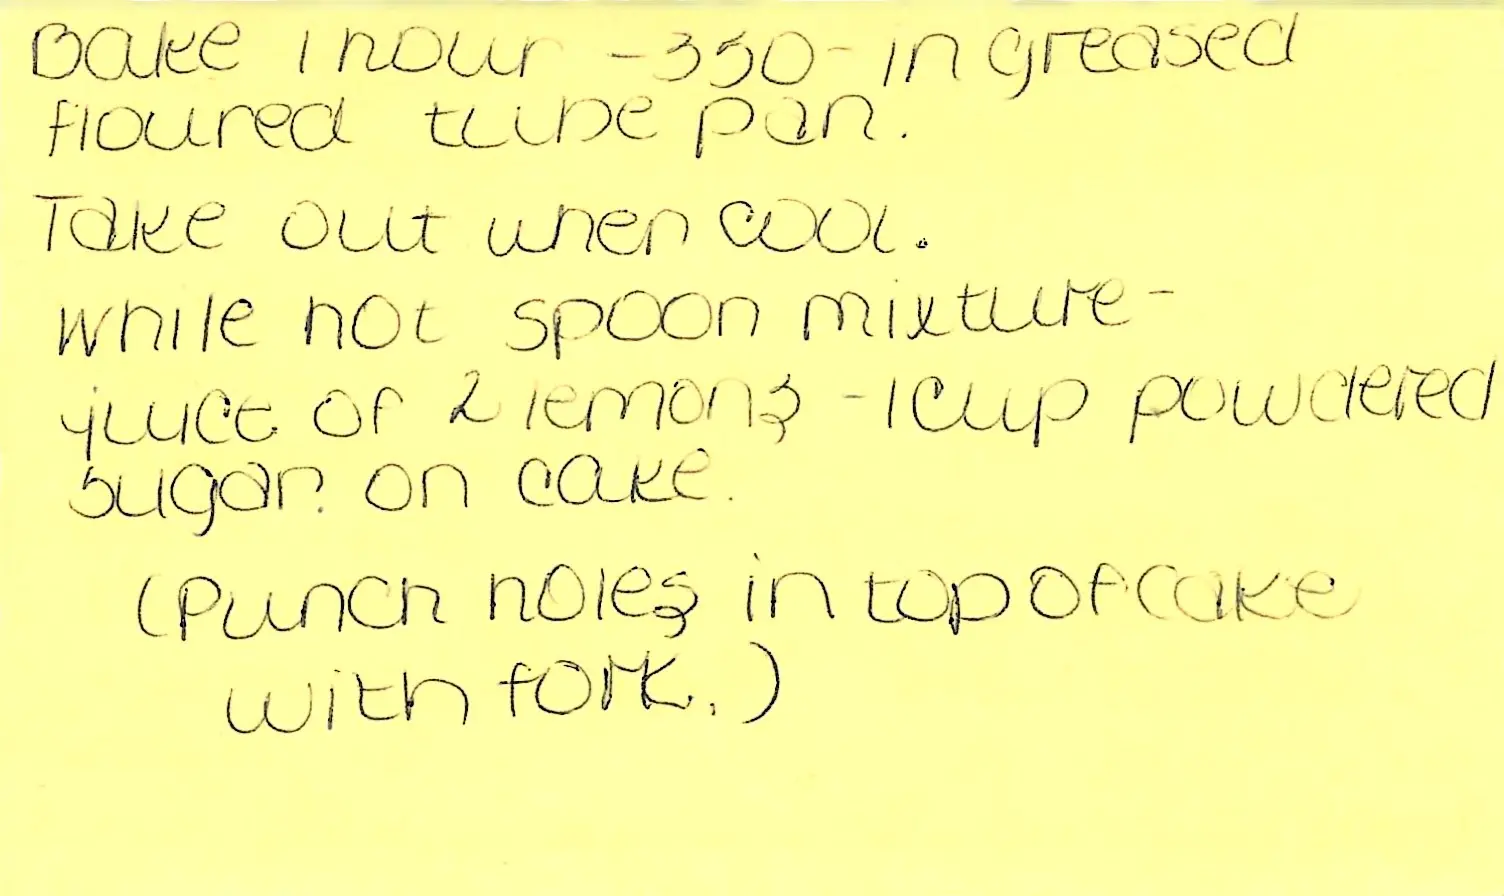 Bake 1 hour - 350 - in greased
floured tube pan.
Take out when cool.
While hot spoon mixture -
juice of 2 lemons - 1 cup powdered
sugar. on cake.
(Punch holes in top of cake
with fork.)